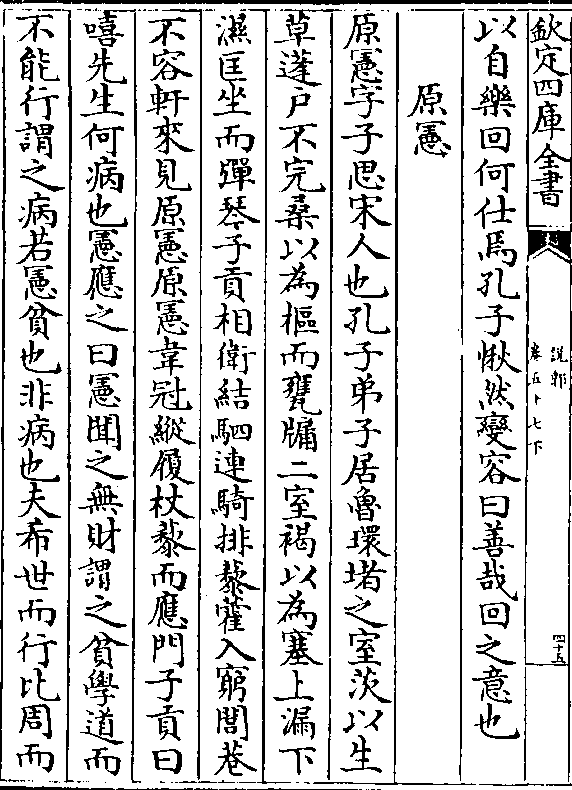 欽定四庫全書
說郛
卷五十七下
四十五
以自樂回何仕焉孔子愀然變容曰善哉回之意也
原憲
原憲字子思宋人也孔子弟子居魯環堵之室茨以生
草蓬戶不完桑以為樞而甕牖二室褐以為塞上漏下
濕匡坐而彈琴子貢相衛結駟連騎排藜藿入窮閭巷
不容軒來見原憲原憲韋冠縱履杖藜而應門子貢曰
嘻先生何病也憲應之曰憲聞之無財謂之貧學道而
不能行謂之病若憲貧也非病也夫希世而行比周而